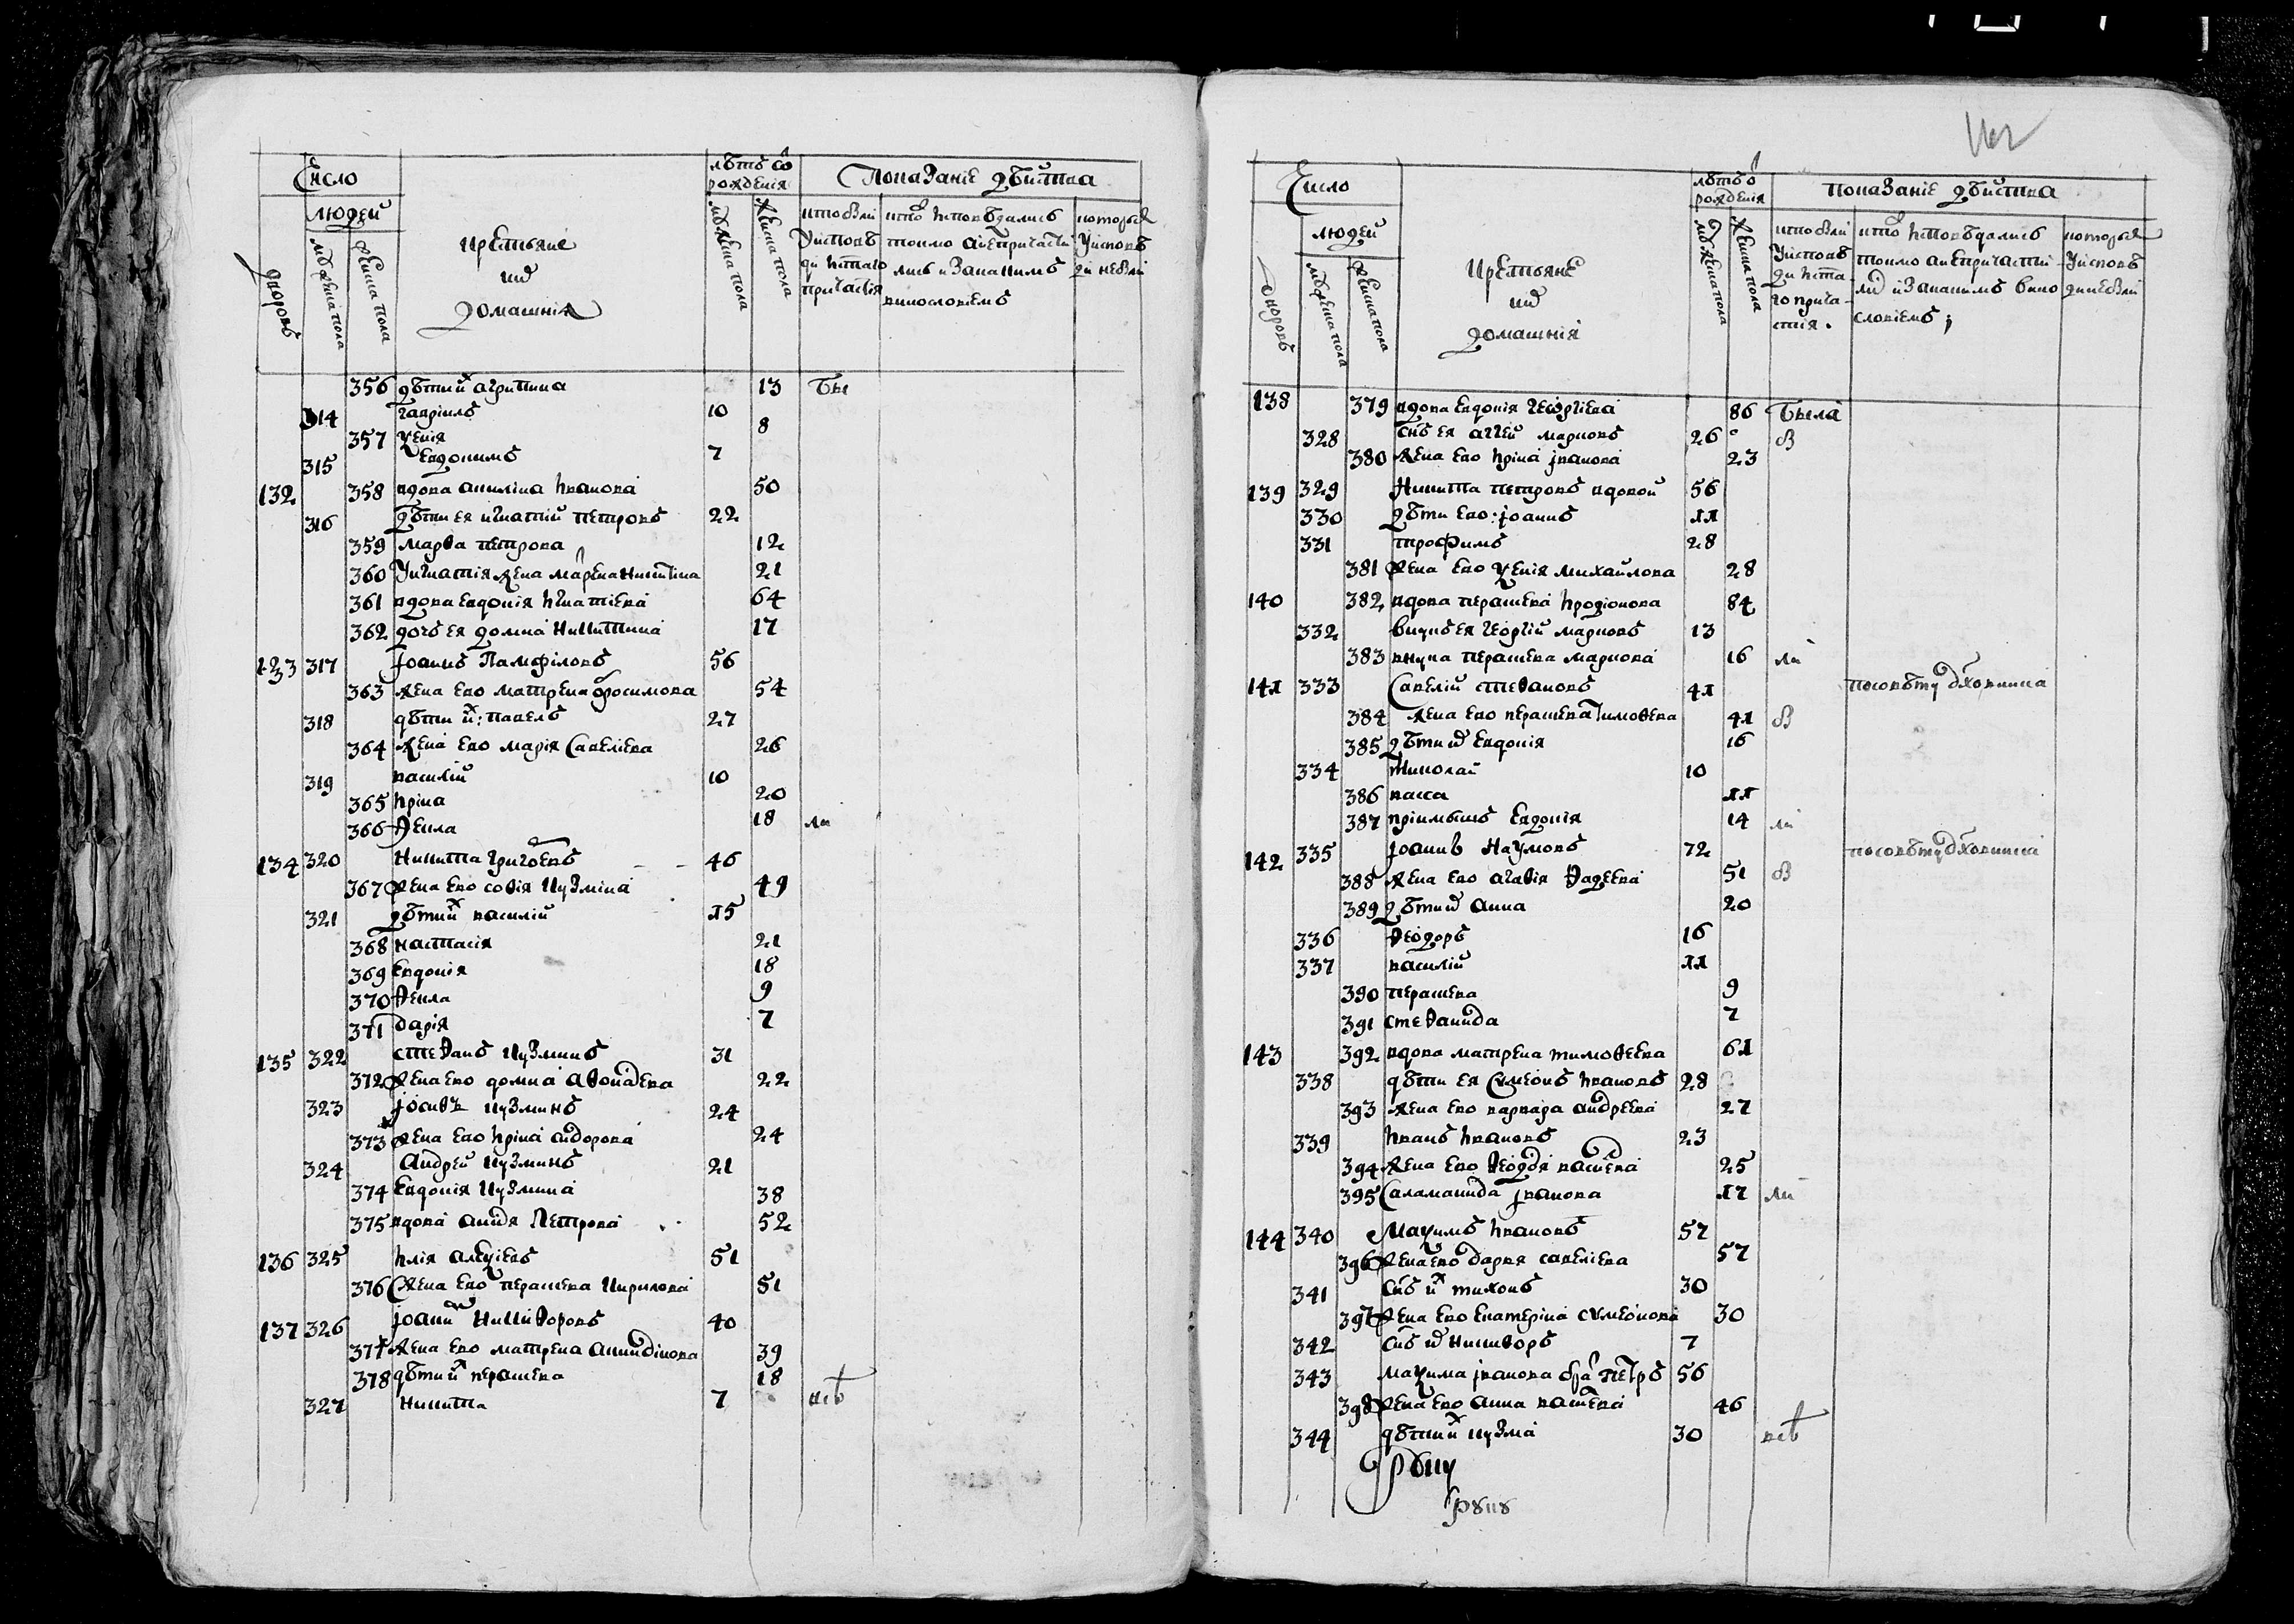 Число
людей
дворовъ
мужеска пола
женска пола
крестьяне
и ихъ
домашнія
лѣтъ ѿ рожденія
мужеска пола
женска пола
Показаніе дѣйства
кто былъ у исповѣди и стаго причастія
кто исповѣдались токмо а не причастились и за какимъ винословіемъ
которыя у исповѣди не были
356 дѣти их агрипина 13 бы
314 гавріилъ 10
357 ѯенія 8
315 евдокимъ 7
132 358 вдова акилина Иванова 50
316 дѣти ея игнатий петровъ 22
359 марѳа петрова 12
360 У игнатія жена марѳа Никитина 21
361 вдова евдокія Игнатіева 64
362 дочь ея домна Никитина 17
133 317 іоаннъ Памфіловъ 56
363 жена ево матрена ефросимова 54
318 дѣти их: павелъ 27
364 жена ево марія Савеліева 26
319 василій 10
365 Ірина 20
366 Ѳекла 18 ли
134 320 Никита григорьевъ 46
367 жена ево софія Кузмина 49
321 дѣти их василій 15
368 настасія 21
369 Евдокія 18
370 Ѳекла 9
371 дарія 7
135 322 стеѳанъ Кузминъ 31
372 жена ево домна аѳонасева 22
323 іосиѳъ кузминъ 24
373 жена ево Ірина сидорова 24
324 андрей кузминъ 21
374 Евдокія Кузмина 38
375 вдова Петрова 52
136 325 Илія алеѯіевъ 51
376 жена ево перасковья Кирилова 51
137 326 іоанн Никиѳоровъ 40
377 жена ево матрена акиндінова 39
378 дѣти их перасковья 18
327 никита 7 всѣ
Число
людей
дворовъ
мужеска пола
женска пола
крестьяне
и ихъ
домашнія
лѣтъ ѿ рожденія
мужеска пола
женска пола
показаніе дѣйства
кто былъ у исповѣди и стаго причастія.
кто исповѣдались токмо а не причастились и за какимъ винословіемъ;
которыя у исповѣди не были
138 379 вдова евдокія Георгіева 86 была
328 снъ ея аггей марковъ 26 в
380 жена ево Ірина іванова 23
139 329 Никита петровъ вдовой 56
330 дѣти ево: іоаннъ 11
331 трофимъ 28
381 жена ево ѯенія михайлова 28
140 382 вдова перасковья Іродіонова 84
332 внукъ ея георгій марковъ 13
383 внука перасковья маркова 16 ли
141 333 Савелій стеѳановъ 41 по совѣту дховника
384 жена ево перасковья тимоѳеева 41 в
385 дѣти их евдокія 16
334 Николай 10
386 васса 11
387 пріимышъ Евдокія 14 ли
142 335 іоаннъ наумовъ 72 по совѣту дховника
388 жена ево агаѳія Ѳадеева 51 в
389 дѣти их анна 20
336 Ѳеодоръ 16
337 василій 11
390 перасковья 9
391 стеѳанида 7
143 392 вдова матрена тимоѳеева 61
338 дѣти ея Сѵмеонъ Івановъ 28
393 жена ево варвара андреева 27
339 Іванъ Івановъ 23
394 жена ево Ѳеодосья васильева 25
395 Саламанида іванова 17 ли
144 340 Маѯимъ Івановъ 57
396 жена ево дарья савеліева 57
341 снъ их тихонъ 30
397 жена ево екатеріна сѵмеонова 30
342 снъ их никиѳоръ 7
343 маѯима іванова бра петръ 56
398 жена ево анна васильева 46
344 дѣти их кузма 30 всѣ
руку